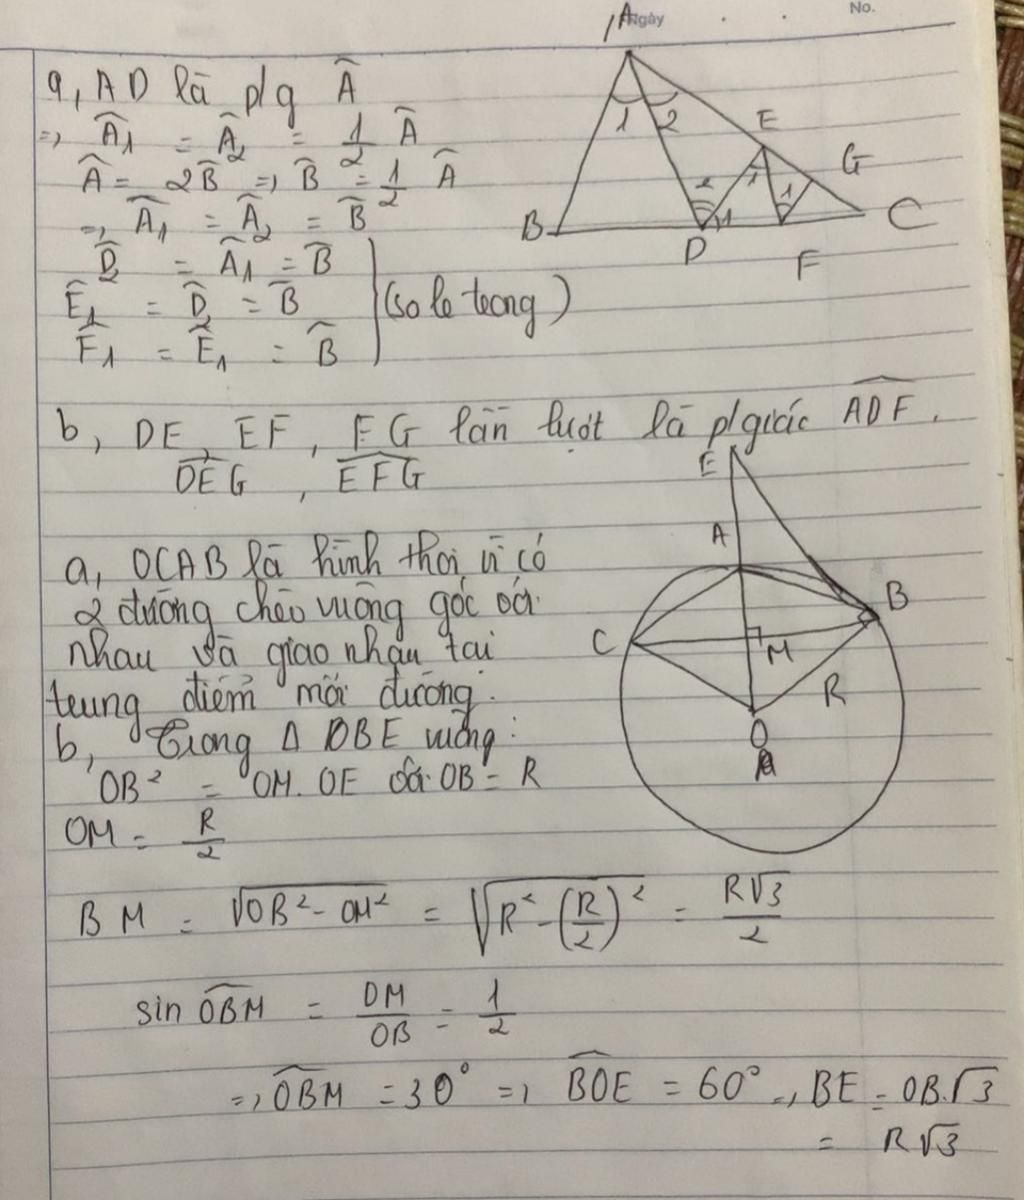 Ngày
No.
a, AD là p/g Â
=> Â1 = Â2 = 1/2 Â
Â = 2B̂ => B̂ = 1/2 Â
=> Â1 = Â2 = B̂
D̂2 = Â1 = B̂
Ê1 = D̂2 = B̂
F̂1 = Ê1 = B̂
(so le trong)
A
1 2
E
G
B
2 1 1 1
C
D
F
b, DE, EF, FG lần lượt là p/giác ADF.
DEG, EFG
a, OCAB là hình thoi vì có
2 đường chéo vuông góc với
nhau và giao nhau tại
trung điểm mỗi đường.
b, Trong Δ OBE vuông:
OB² = OM. OE với OB = R
OM = R/2
E
A
B
C
M
R
O
BM = √(OB² - OM²) = √(R² - (R/2)²) = R√3/2
sin OBM = OM/OB = 1/2
=> OBM = 30° => BOE = 60° => BE = OB.√3
= R√3